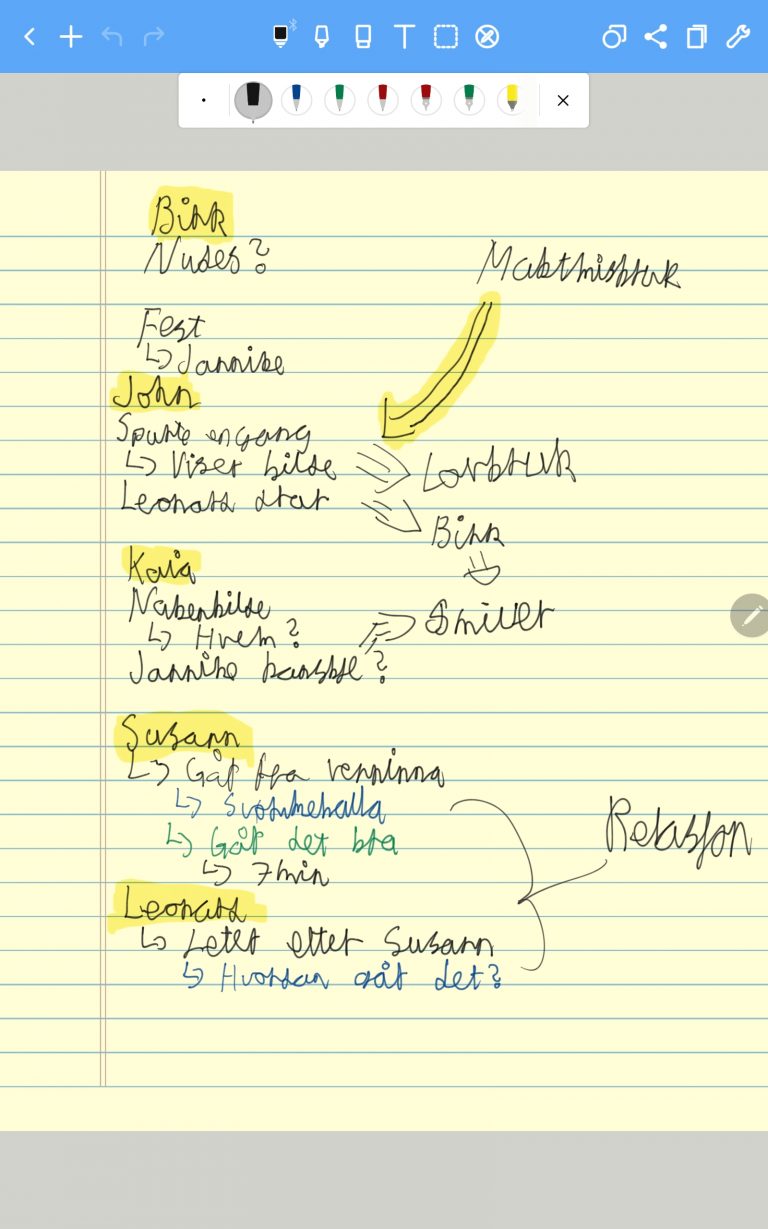 Birk
Nudes?
Maktmisbruk
Fest
↳ Jannike
John
Spurte engang
↳ Viser bilde
Lovbruk
Leonard drar
Birk
Kaia
Nakenbilde
Smiler
↳ Hvem?
Jannike kanskje?
Susann
↳ Går fra venninna
↳ Svømmehalla
Relasjon
↳ Går det bra
↳ 7min
Leonard
↳ Leter etter Susann
↳ Hvordan går det?